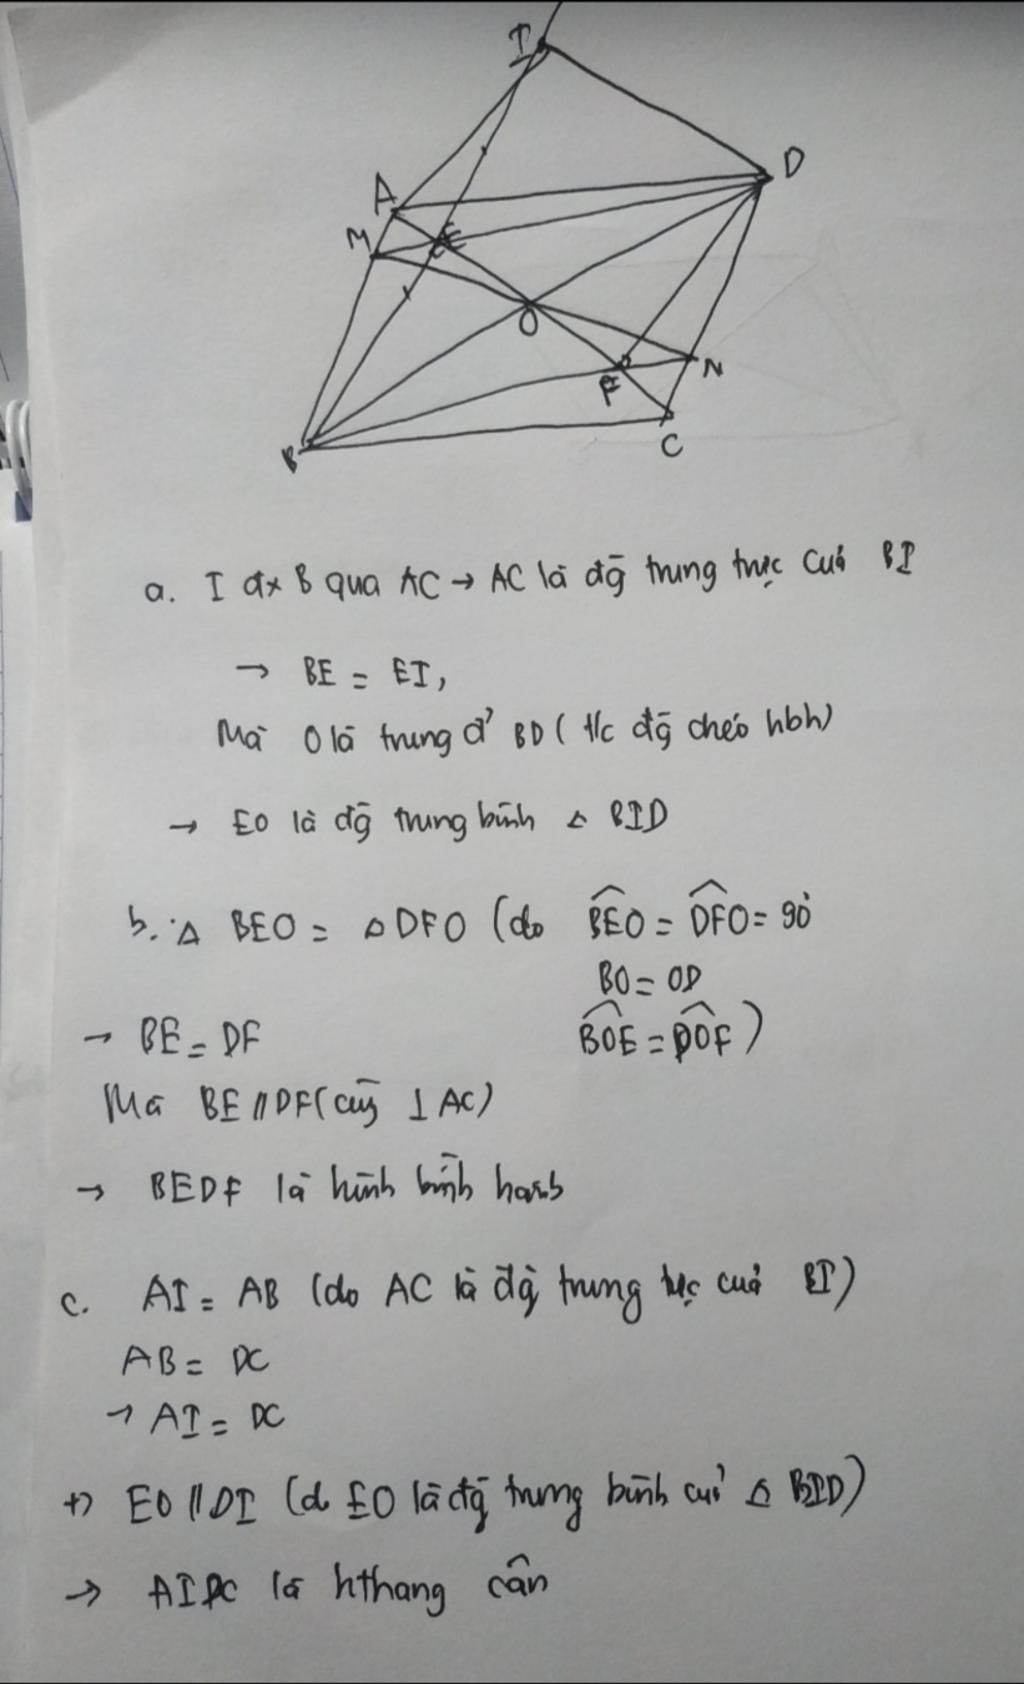 I
D
A
M
E
O
F
N
B
C
a. I đx B qua AC → AC là đg̃ trung trực của BI
→ BE = EI,
Mà O là trung đ' BD ( t/c đg̃ chéo hbh)
→ EO là đg̃ trung bình △ BID
b. △ BEO = △ DFO (do BEO = DFO = 90
BO = OD
→ BE = DF BOE = DOF )
Mà BE // DF ( cùg ⊥ AC)
→ BEDF là hình bình hành
c. AI = AB (do AC là đg̀ trung trực của BI)
AB = DC
→ AI = DC
+) EO // DI (do EO là đg̃ trung bình củ' △ BID)
→ AIDC là hthang cân